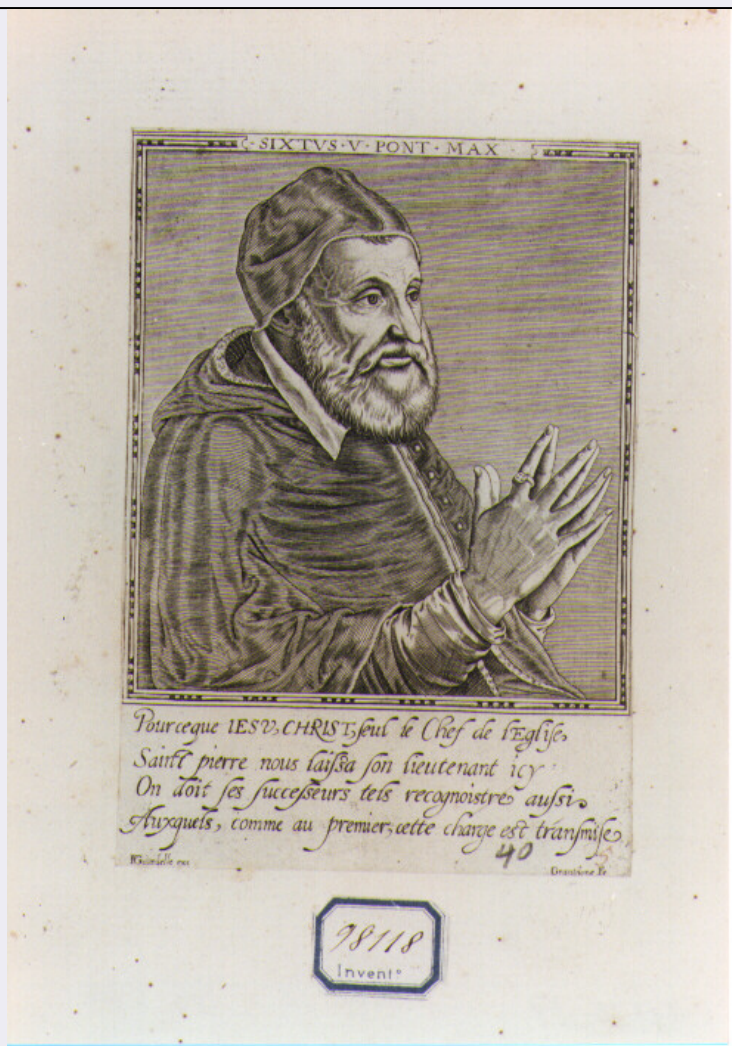 · SIXTVS · V · PONT · MAX ·
Pourceque IESV, CHRIST, seul le Chef de l'Eglise,
Sainct pierre nous laissa son lieutenant icy:
On doit ses successeurs tels recognoistre aussi.
Auxquels, comme au premier, cette charge est transmise,
40
exc
fe
98118
Invent°